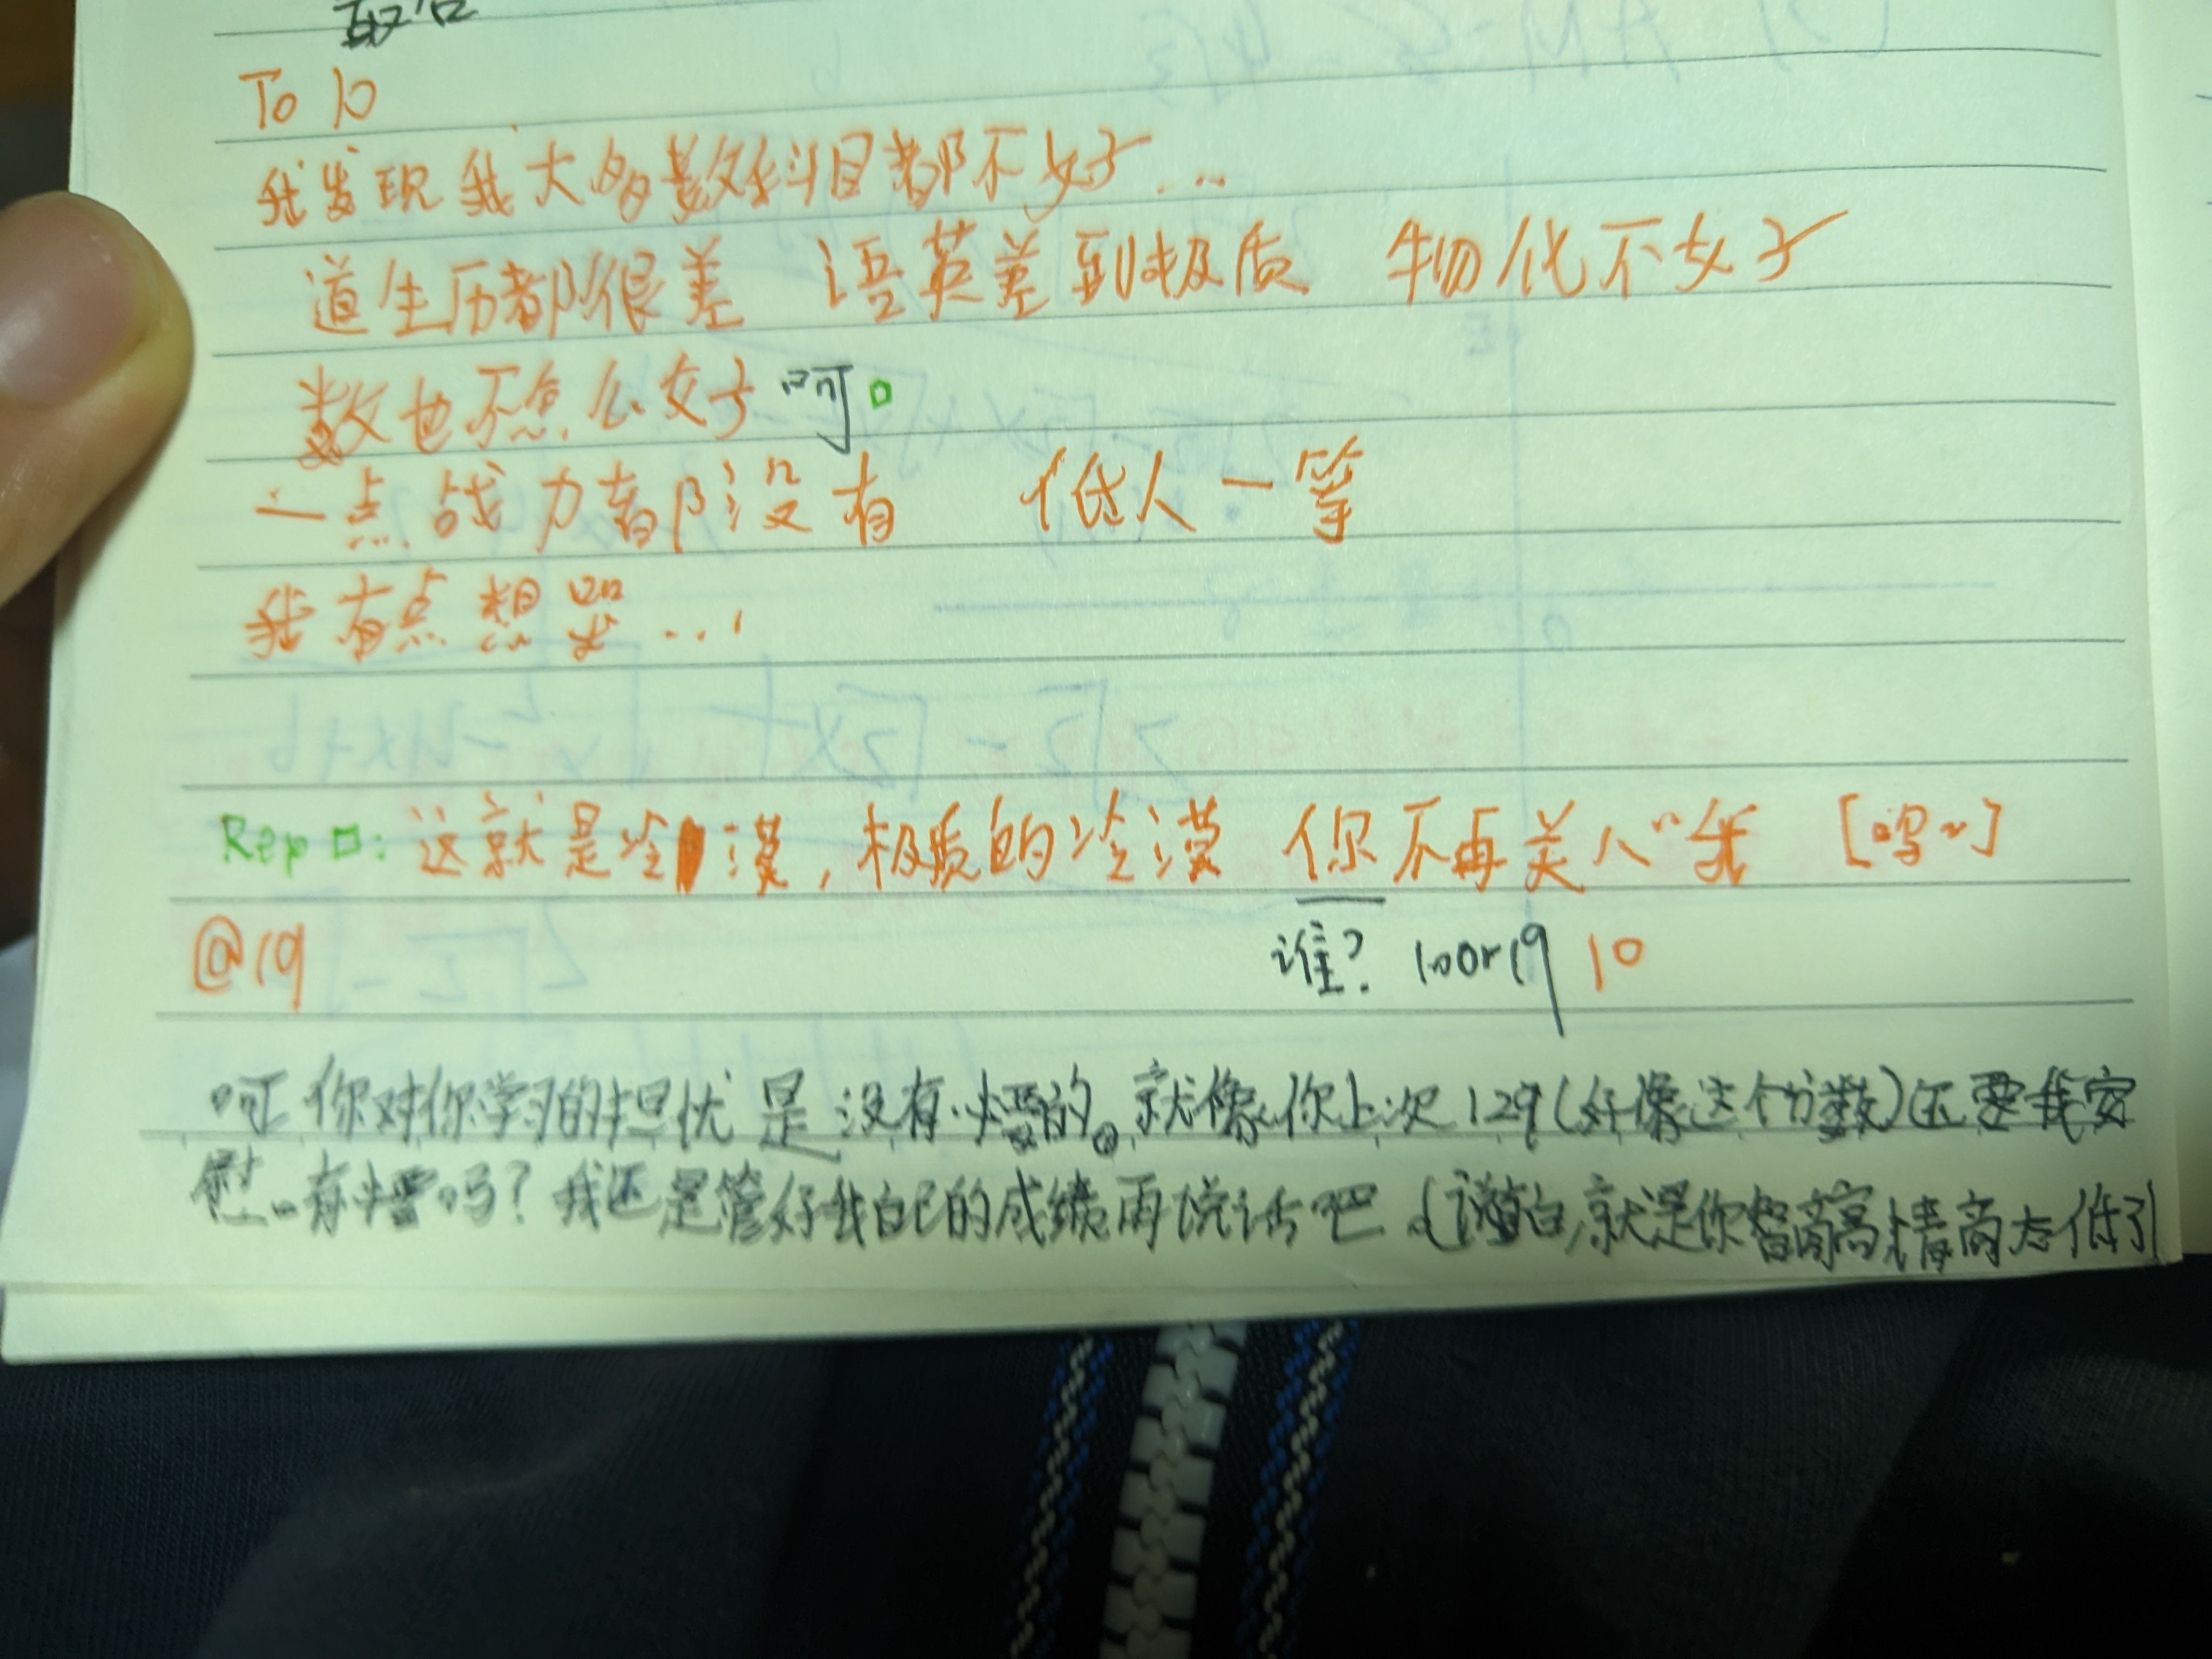 To 10
我发现我大多数科目都不好...
道生历都很差 语英差到极质 物化不好
数也不怎么好 呵。
一点战力都没有 低人一等
我有点想哭...
Rep 口: 这就是冷漠，极质的冷漠 你不再关心我 [呜~]
@19 谁? 10 or 19 10
呵你对你学习的担忧是没有懂的。就像你上次129(好像这个分数)还要我安
慰。有懂吗？我还是管好我自己的成绩再说话吧。(说白,就是你智商高,情商太低了)